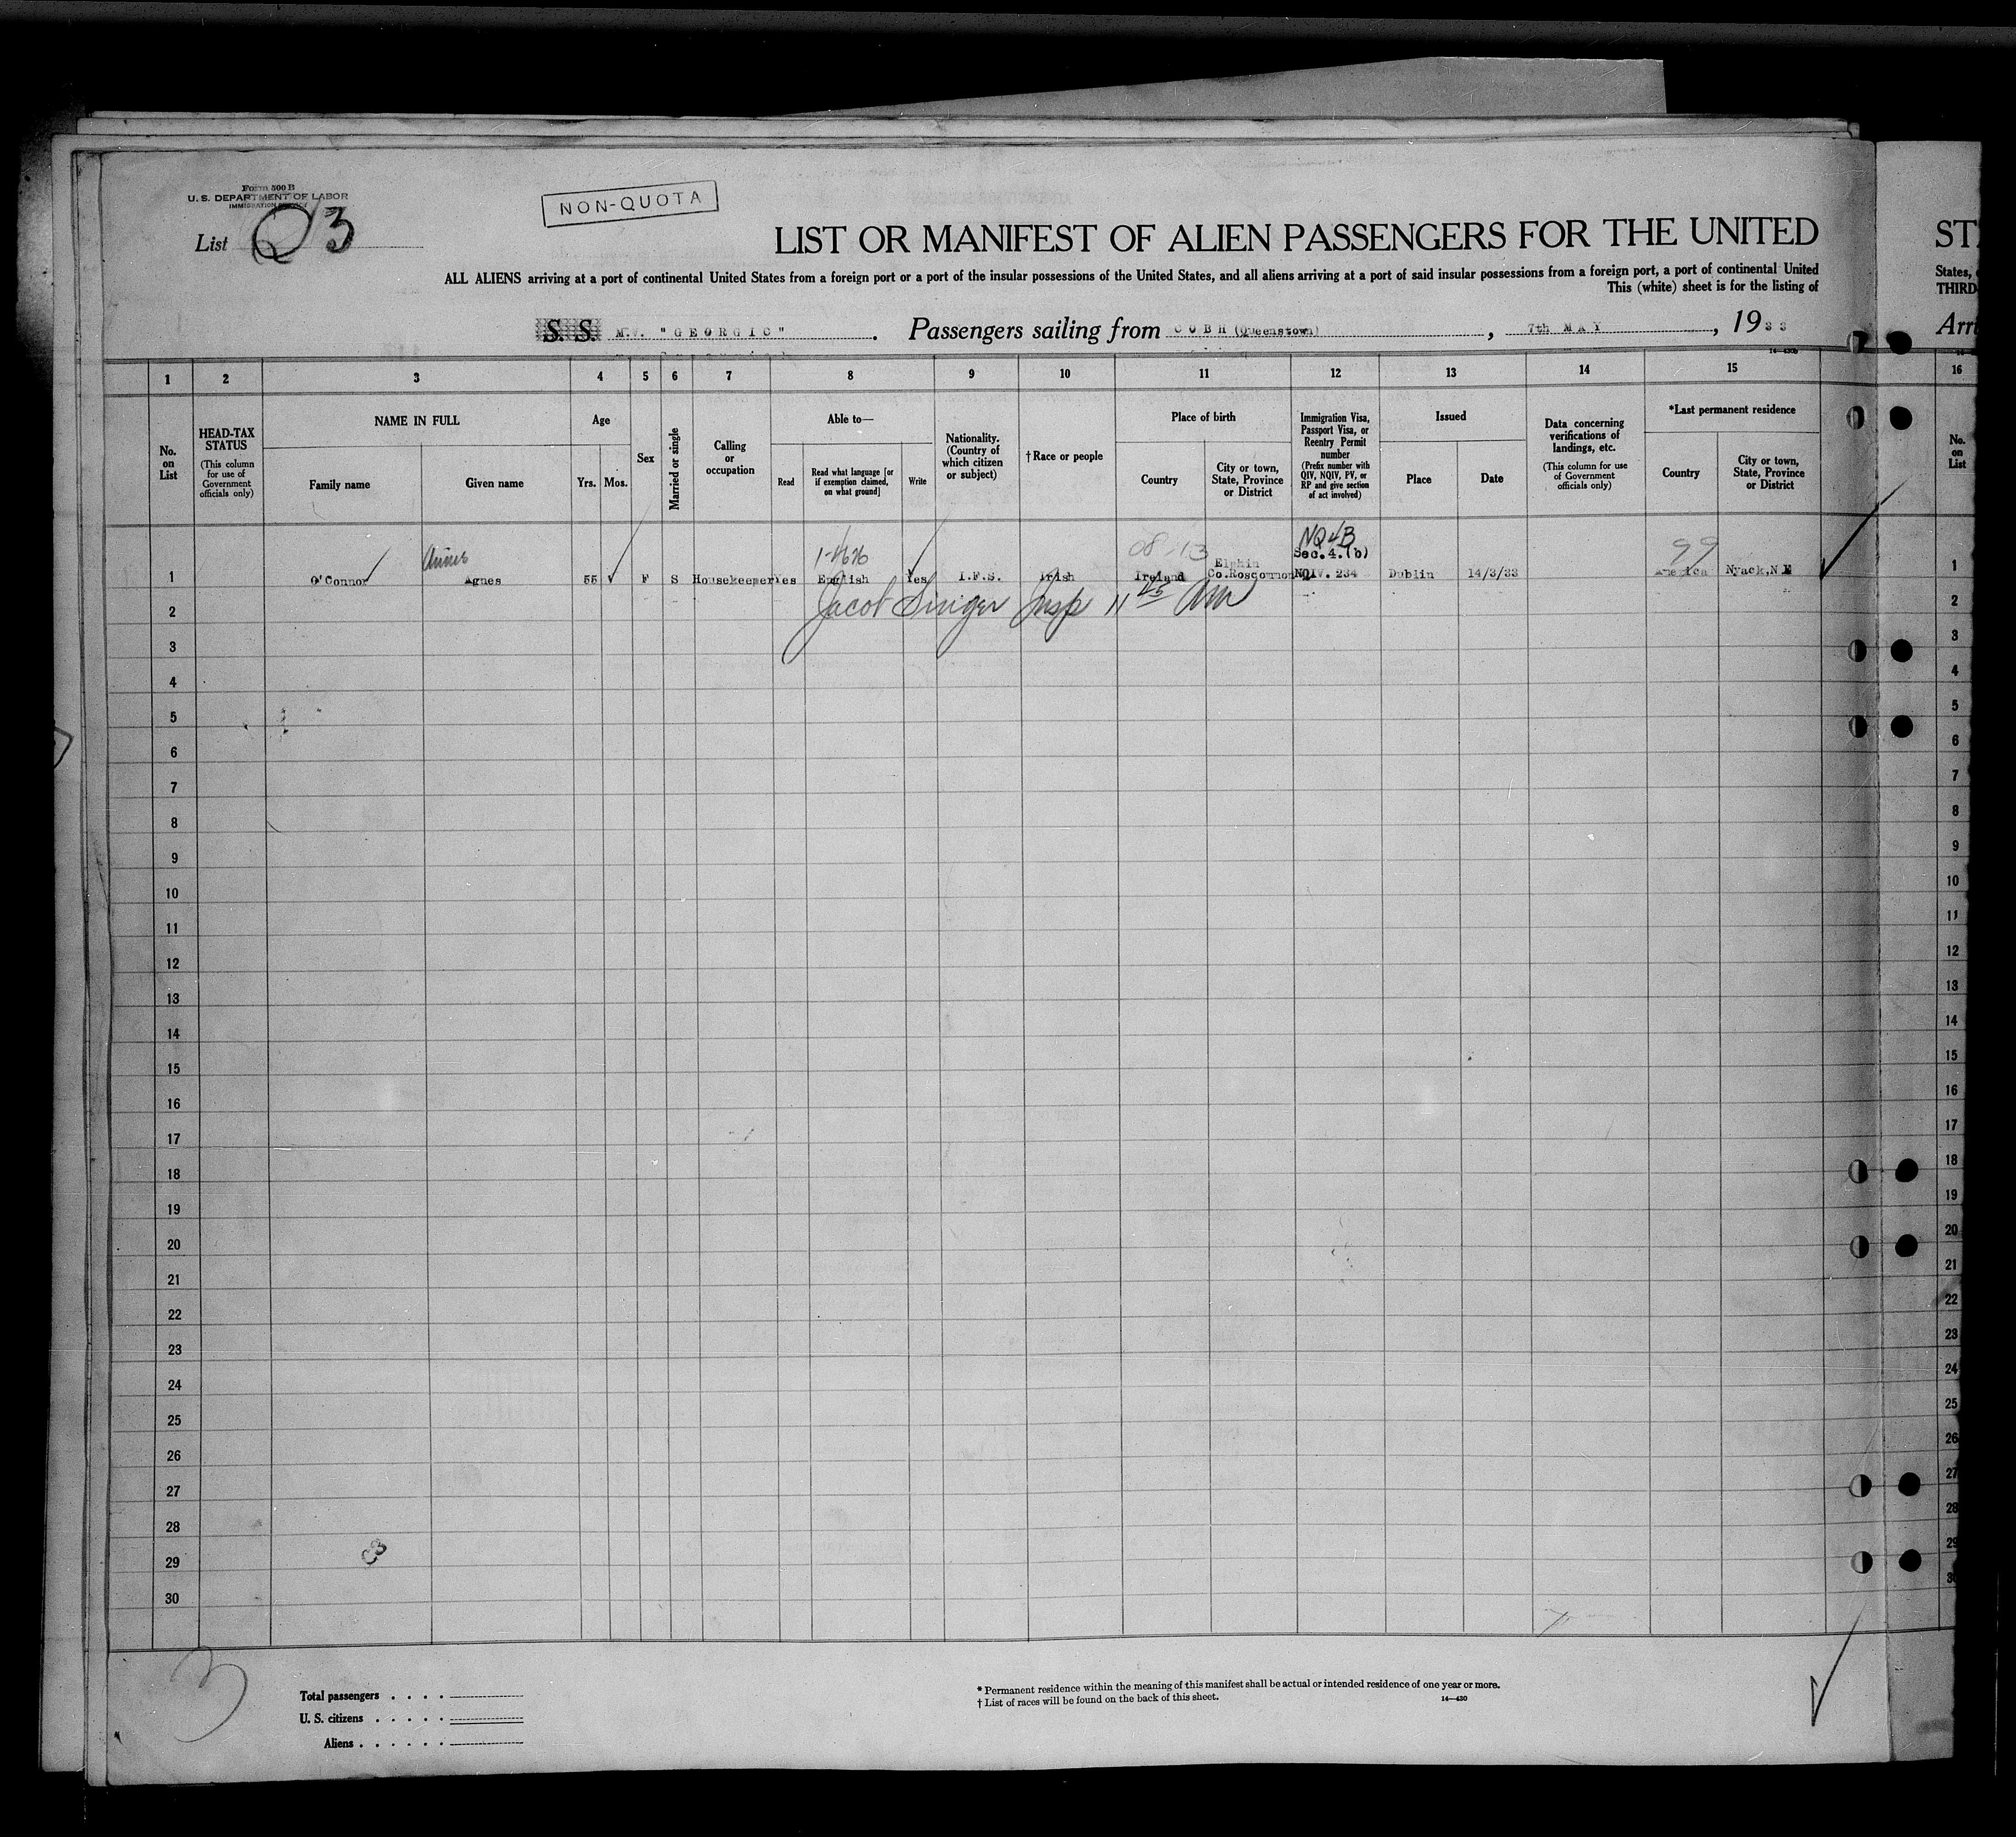 Form 500 B
U. S. DEPARTMENT OF LABOR
IMMIGRATION SERVICE
List Q 3
NON-QUOTA
LIST OR MANIFEST OF ALIEN PASSENGERS FOR THE UNITED
ALL ALIENS arriving at a port of continental United States from a foreign port or a port of the insular possessions of the United States, and all aliens arriving at a port of said insular possessions from a foreign port, a port of continental United
This (white) sheet is for the listing of
S. S. M.V. "GEORGIC". Passengers sailing from COBH (Queenstown), 7th MAY, 1933
STA
States,
THIRD-
Arri
1 2 3 4 5 6 7 8 9 10 11 12 13 14 15 16
No. on List
HEAD-TAX STATUS (This column for use of Government officials only)
NAME IN FULL
Family name Given name
Age
Yrs. Mos.
Sex
Married or single
Calling or occupation
Able to—
Read
Read what language [or if exemption claimed, on what ground]
Write
Nationality. (Country of which citizen or subject)
†Race or people
Place of birth
Country
City or town, State, Province or District
Immigration Visa, Passport Visa, or Reentry Permit number (Prefix number with QIV, NQIV, PV, or RP and give section of act involved)
Issued
Place Date
Data concerning verifications of landings, etc. (This column for use of Government officials only)
*Last permanent residence
Country
City or town, State, Province or District
No. on List
08-13 NQ4B 99
Elphin Sec.4.(b)
1 O'Connor Agnes 55 F S Housekeeper Yes English Yes I.F.S. Irish Ireland Co.Roscommon NQIV. 234 Dublin 14/3/33 America Nyack,N 1
Jacob Singer Insp 11 45 Am
2 2
3 3
4 4
5 5
6 6
7 7
8 8
9 9
10 10
11 11
12 12
13 13
14 14
15 15
16 16
17 17
18 18
19 19
20 20
21 21
22 22
23 23
24 24
25 25
26 26
27 27
28 28
29 29
30 30
3
Total passengers
U. S. citizens
Aliens
* Permanent residence within the meaning of this manifest shall be actual or intended residence of one year or more.
† List of races will be found on the back of this sheet. 14—430